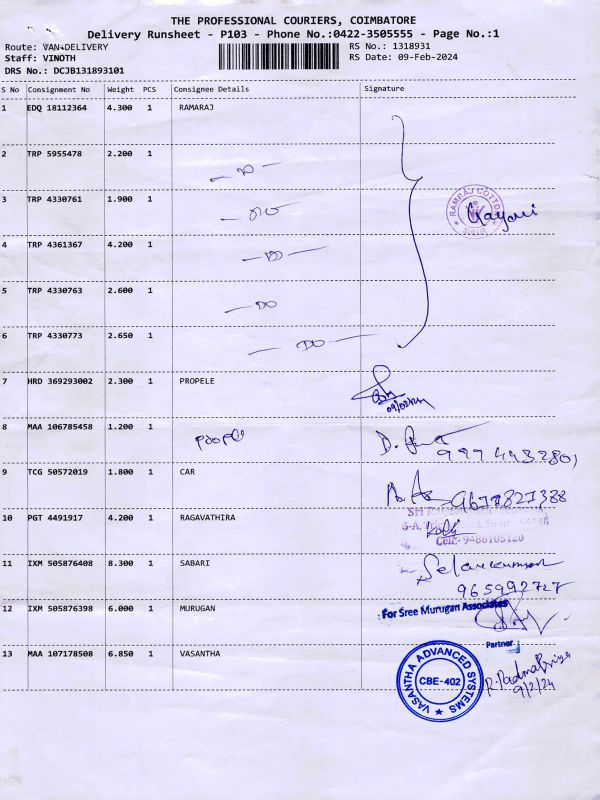 THE PROFESSIONAL COURIERS, COIMBATORE
Delivery Runsheet - P103 - Phone No.:0422-3505555 - Page No.:1
Route: VAN-DELIVERY RS No.: 1318931
Staff: VINOTH RS Date: 09-Feb-2024
DRS No.: DCJB131893101
S No Consignment No Weight PCS Consignee Details Signature
1 EDQ 18112364 4.300 1 RAMARAJ
2 TRP 5955478 2.200 1 — DO —
3 TRP 4330761 1.900 1 — DO —
RAMRAJ COTTON SULUR
Gayathri
4 TRP 4361367 4.200 1 — DO —
5 TRP 4330763 2.600 1 — DO
6 TRP 4330773 2.650 1 — DO —
7 HRD 369293002 2.300 1 PROPELE
8 MAA 106785458 1.200 1
9 TCG 50572019 1.800 1 CAR 9677827388
10 PGT 4491917 4.200 1 RAGAVATHIRA
Cell:-9486105120
11 IXM 505876408 8.300 1 SABARI Selvakumar
965992727
12 IXM 505876398 6.000 1 MURUGAN For Sree Murugan Associates
Partner
13 MAA 107178508 6.850 1 VASANTHA
VASANTHA ADVANCED SYSTEMS
CBE-402
R. Padma Priya
9/2/24